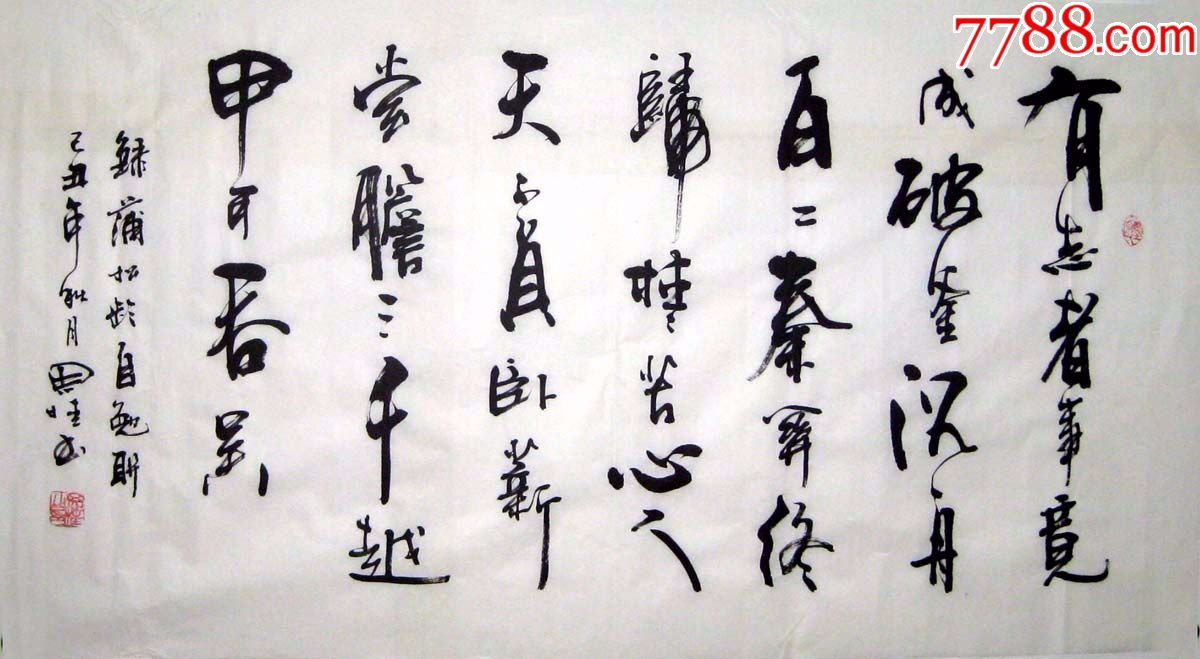 7788.com
有志者事竟
成破釜沉舟
百二秦關终
歸楚苦心人
天不負卧薪
尝膽三千越
甲可吞吴
録蒲松龄自勉联
己丑年秋月周书